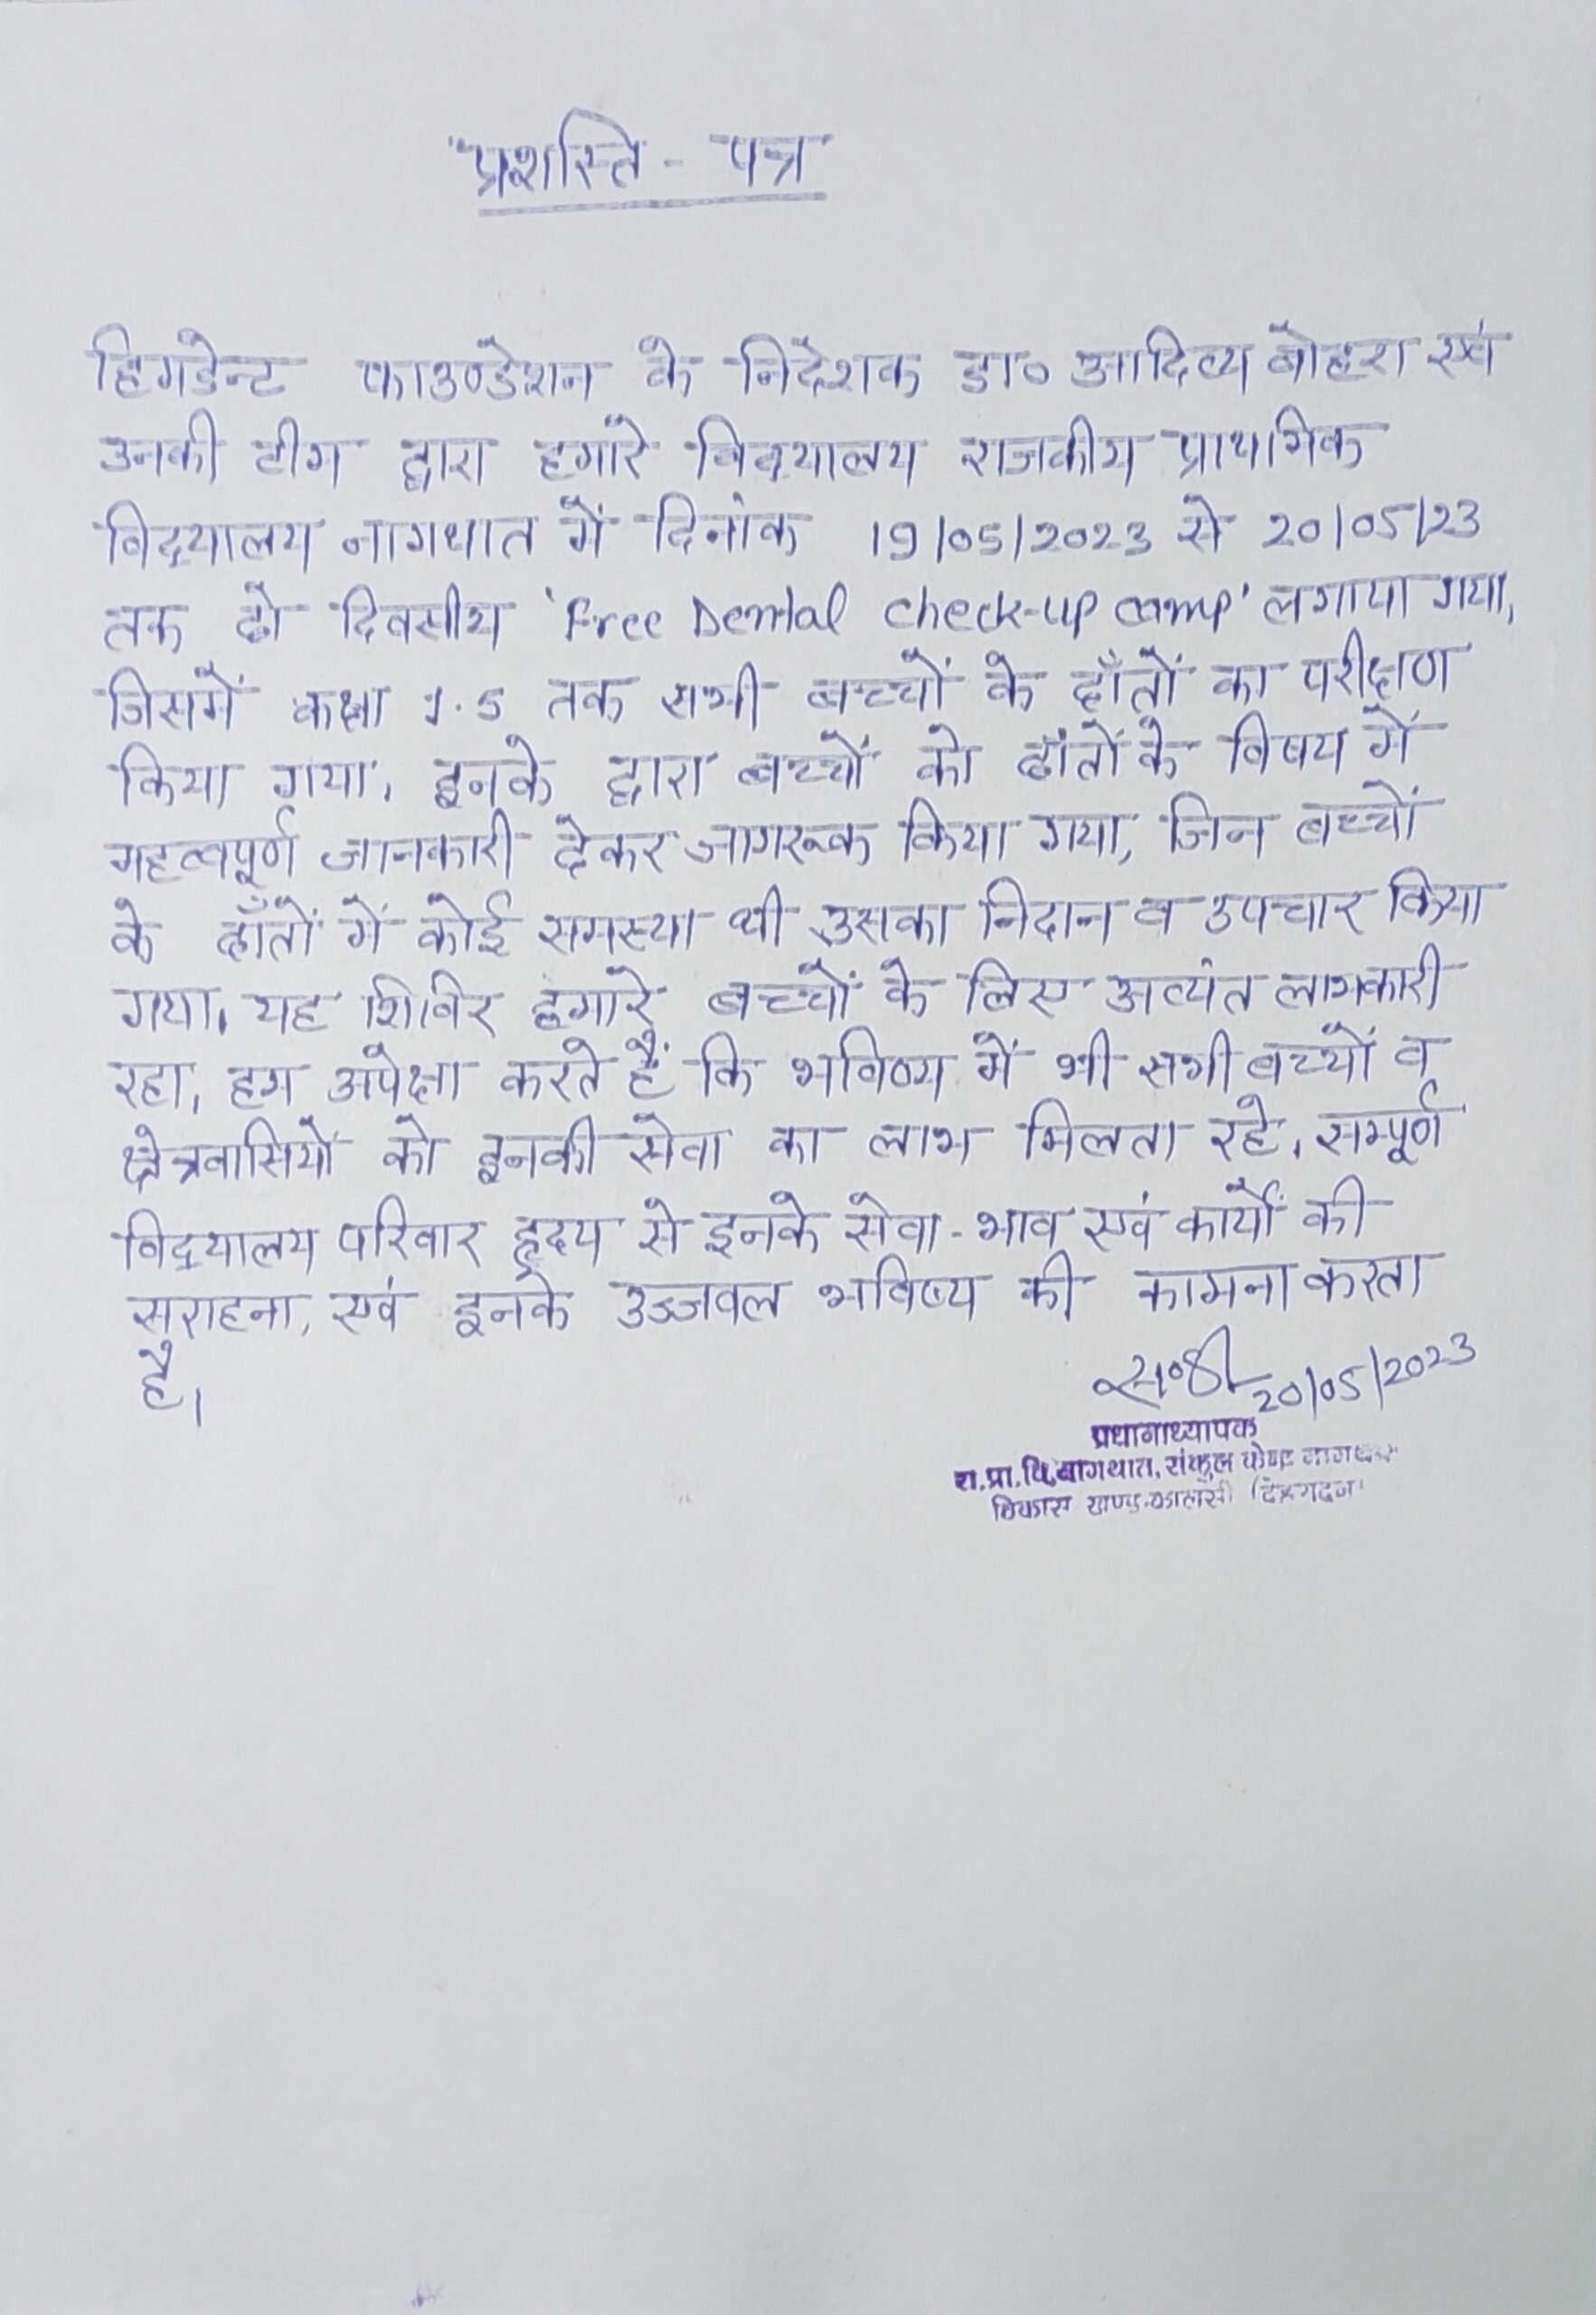 "प्रशस्ति - पत्र
हिमडेन्ट फाउण्डेशन के निर्देशक डा० आदित्य बोहरा एवं
उनकी टीम द्वारा हमारे विद्यालय राजकीय प्राथमिक
विद्यालय नागथात में दिनांक 19/05/2023 से 20/05/23
तक दो दिवसीय 'Free Dental check-up camp' लगाया गया,
जिसमें कक्षा 1-5 तक सभी बच्चों के दाँतों का परीक्षण
किया गया। इनके द्वारा बच्चों को दाँतों के विषय में
महत्वपूर्ण जानकारी देकर जागरूक किया गया, जिन बच्चों
के दाँतों में कोई समस्या थी उसका निदान व उपचार किया
गया। यह शिविर हमारे बच्चों के लिए अत्यंत लाभकारी
रहा, हम अपेक्षा करते हैं कि भविष्य में भी सभी बच्चों व
क्षेत्रवासियों को इनकी सेवा का लाभ मिलता रहे। सम्पूर्ण
विद्यालय परिवार हृदय से इनके सेवा-भाव एवं कार्यों की
सराहना, एवं इनके उज्जवल भविष्य की कामना करता
है।
20/05/2023
प्रधानाध्यापक
रा.प्रा.वि.नागथात, संकुल केन्द्र नागथात
विकास खण्ड-कालसी (देहरादून)